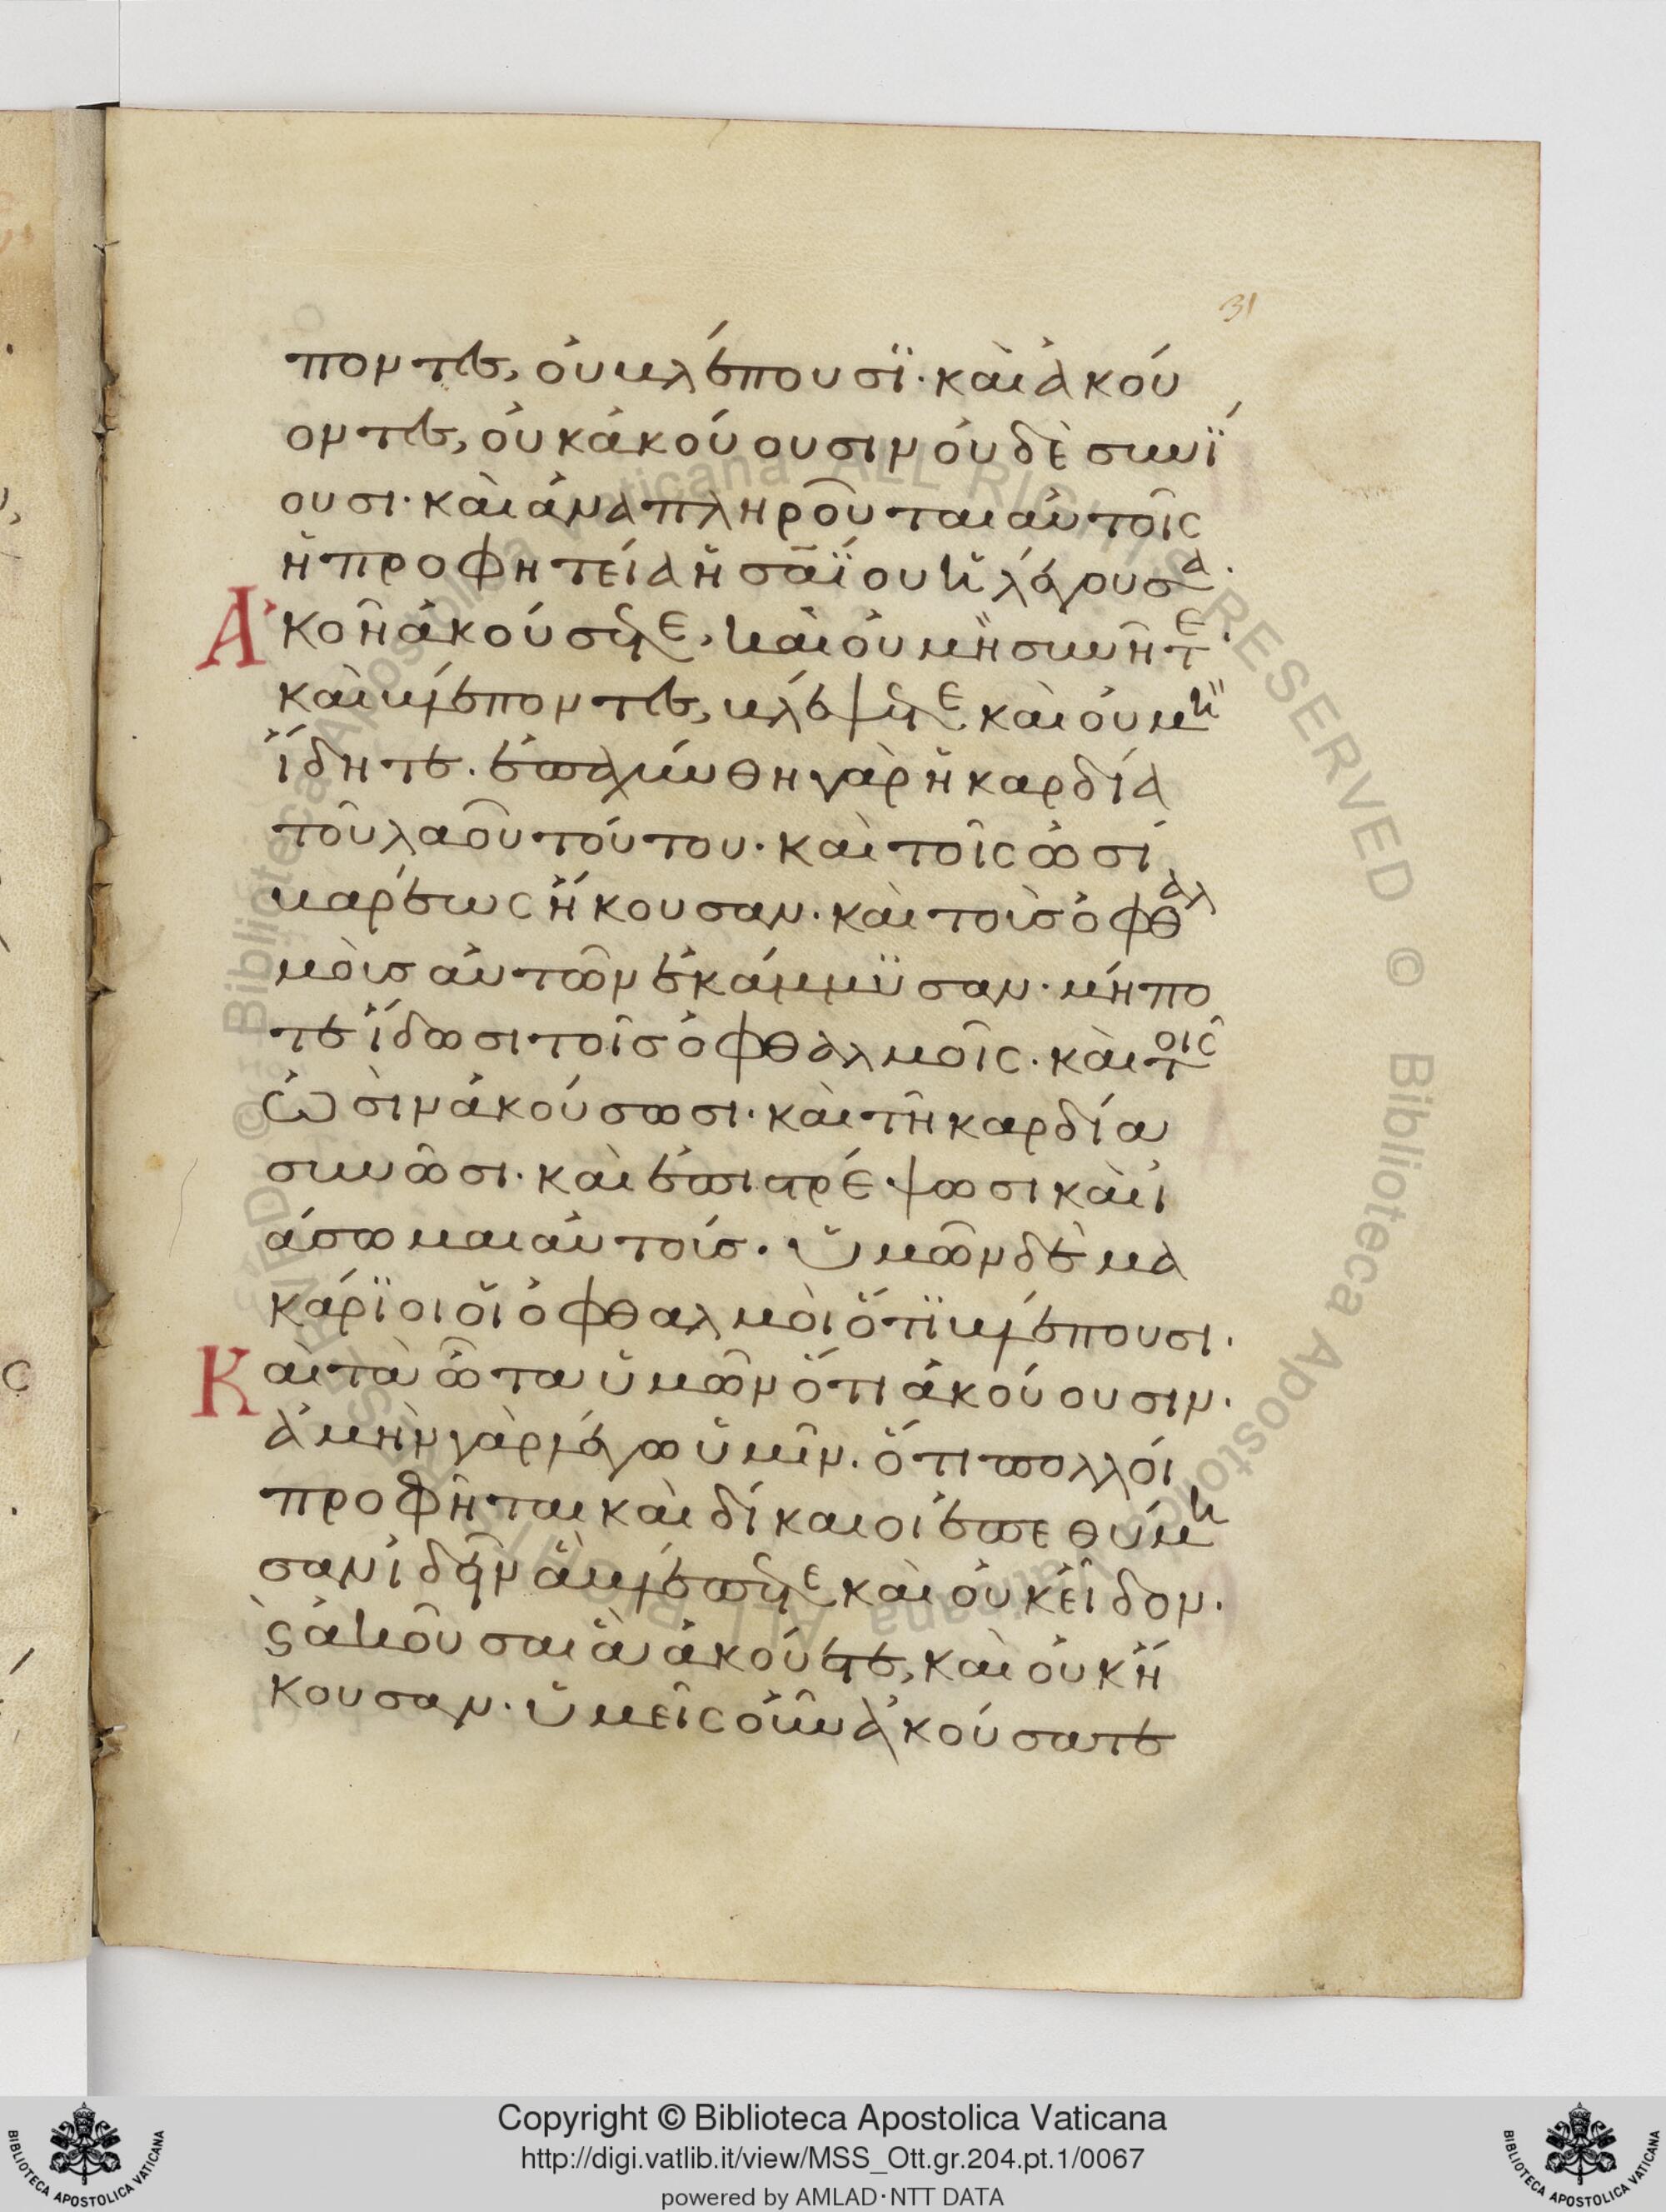 31
ποντες, οὐ βλέπουσϊ· καὶ ἀκού
οντες, οὐκ ἀκούουσιν οὐδὲ συνΐ
ουσι· καὶ ἀναπληροῦται αὐτοῖς
ἡ προφητεία ἡσαΐου ἡ λέγουσα·
Ἀκοῆ ἀκούσετε, καὶ οὐ μὴ συνῆτε·
καὶ βλέποντες, βλέψετε καὶ οὐ μὴ
ἴδητε. ἐπαχύνθη γὰρ ἡ καρδία
τοῦ λαοῦ τούτου· καὶ τοῖς ὠσὶ
βαρέως ἤκουσαν· καὶ τοὺσ ὀφθαλ
μοὺσ αὐτῶν ἐκάμμϋσαν· μήπο
τε ἴδωσι τοῖσ ὀφθαλμοῖς. καὶ τοῖς
ὠσὶν ἀκούσωσι· καὶ τῆ καρδία
συνῶσι· καὶ ἐπιστρέψωσι καὶ ἰ
άσωμαι αὐτούσ. ὑμῶν δὲ μα
κάρϊοι οἱ ὀφθαλμοὶ ὅτϊ βλέπουσι·
Καὶ τὰ ὦτα ὑμῶν ὅτι ἀκούουσιν·
ἀμὴν γὰρ λέγω ὑμῖν. ὅτι πολλοὶ
προφῆται καὶ δίκαιοι ἐπεθύμη
σαν ἰδεῖν ἃ βλέπετε καὶ οὐκ εἶδον·
ϗ ἀκοῦσαι ἃ ἀκούετε, καὶ οὐκ ἤ
κουσαν· ὑμεῖς οὖν ἀκούσατε
Copyright © Biblioteca Apostolica Vaticana
http://digi.vatlib.it/view/MSS_Ott.gr.204.pt.1/0067
powered by AMLAD·NTT DATA
BIBLIOTECA APOSTOLICA VATICANA
BIBLIOTECA APOSTOLICA VATICANA
© Biblioteca Apostolica Vaticana ALL RIGHTS RESERVED
© Biblioteca Apostolica Vaticana ALL RIGHTS RESERVED